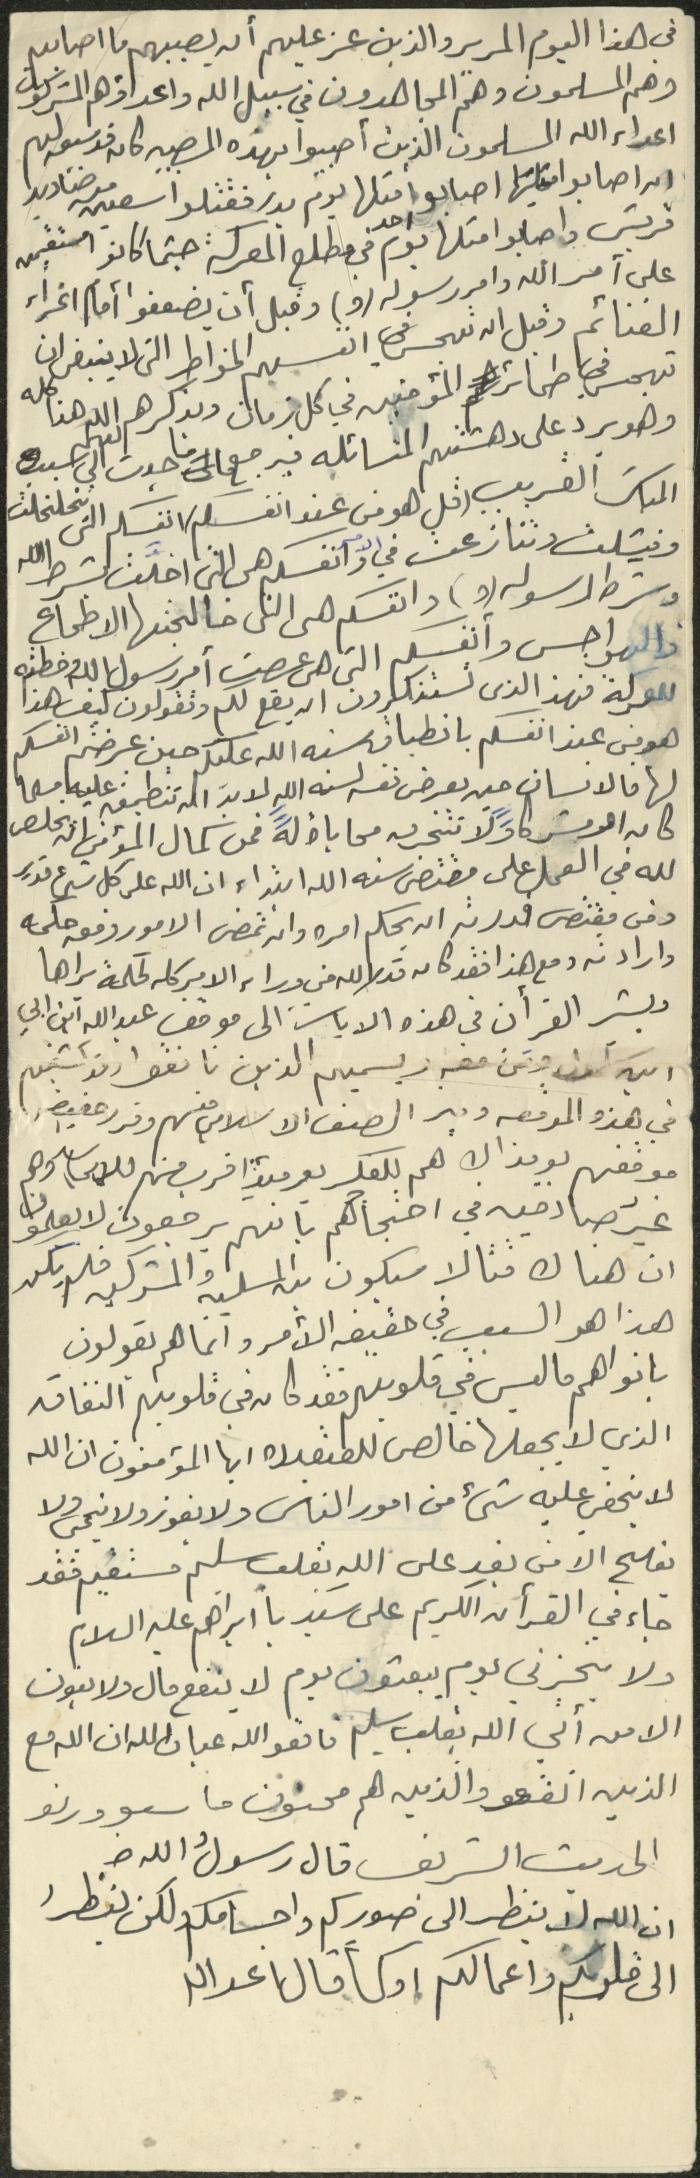 في هذا اليوم المرير والذين عز عليهم أن يصيبهم ما اصابهم
وهم المسلمون وهم المجاهدون في سبيل الله واعداؤهم المشركون
اعداء الله المسلمون الذين أصيبوا بهذه المصيبه كان قد سبق لهم
ان اصابوا مثليها اصابوا مثلها يوم بدر فقتلوا سبعين من صناديد
قريش واصابوا مثلها يوم احد في مطلع المعركة حينما كانوا مستقيمين
على أمر الله وامر رسوله (و) وقبل أن يضعفوا أمام اغراء
الغنائم وقبل ان تهجس في انفسهم الخواطر التي لا ينبغي ان
تهجس في ضمائر المؤمنين في كل زمان ويذكرهم الله هنا كله
وهو يرد على دهشتهم المتسائله فيرجع ما حدث لهم الي سببه
المباشر القريب (قل هو من عند انفسكم) انفسكم التي تخلخلت
وفشلت وتنازعت في الامر وانفسكم هي التي اخلَّت بشرط الله
وشرط رسوله (و) وانفسكم هي التي خالجتها الاطماع
والهواجس وأنفسكم التي هي عصت أمر رسول الله وخطته
للمعركة فهذا الذي تستنكرون ان يقع لكم وتقولون كيف هذا
هو من عند انفسكم بانطباق سنه الله عليكم حين عرضتم انفسكم
لها فالانسان حين يعرض نفسه لسنه الله لا بد ان تنطبق عليه مسلما
كان او مشركاً ولا تنخرق محاباة لهً فمن كمال المؤمن انه يخلص
لله في العمل على مقتضى سنه الله ابتداء ان الله على كل شيء قدير
ومن مقتضى قدرته ان يحكم امره وان تمضي الامور وفق حكمه
وارادته ومع هذا فقد كان قدر الله من وراء الامر كله لحكمة يراها
ويشير القرأن في هذه الايات الى موقف عبد الله ابن ابي
ابن سلول ومن معه ويسميهم الذين نافقوا وقد كشفهم
في هذه الموقعه وميز الصف الاسلامي منهم وقرر حقيقه
موقفهم يومذاك هم للكفر يومئذ اقرب منهم للايمان وهم
غير صادقين في احتجاجهم بانهم يرجعون لا يعلمون
ان هناك قتالا سيكون بين المسلمين والمشركين فلم يكن
هذا هو السبب في حقيقه الأمر وانما هم يقولون
بافواههم ما ليس في قلوبهم فقد كان في قلوبهم النفاق
الذي لا يجعلها خالص للعقيده ايها المؤمنون ان الله
لا يخفى عليه شئ من امور الناس ولا يفوز ولا ينجى ولا
يفلح الا من يفد على الله بقلب سليم مستقيم فقد
جاء في القرأن الكريم على سيدنا ابراهيم عليه السلام
ولا تخزني يوم يبعثون يوم لا ينفع مال ولا بنون
الا من أتى الله بقلب سليم فاتقوا الله عباد الله ان الله مع
الذين اتقو والذين هم محسنون
الحديث الشريف قال رسول الله ص
ان الله لا ينظر الى صوركم واجسامكم ولكن ينظر
الى قلوبكم واعمالكم اوكما قال